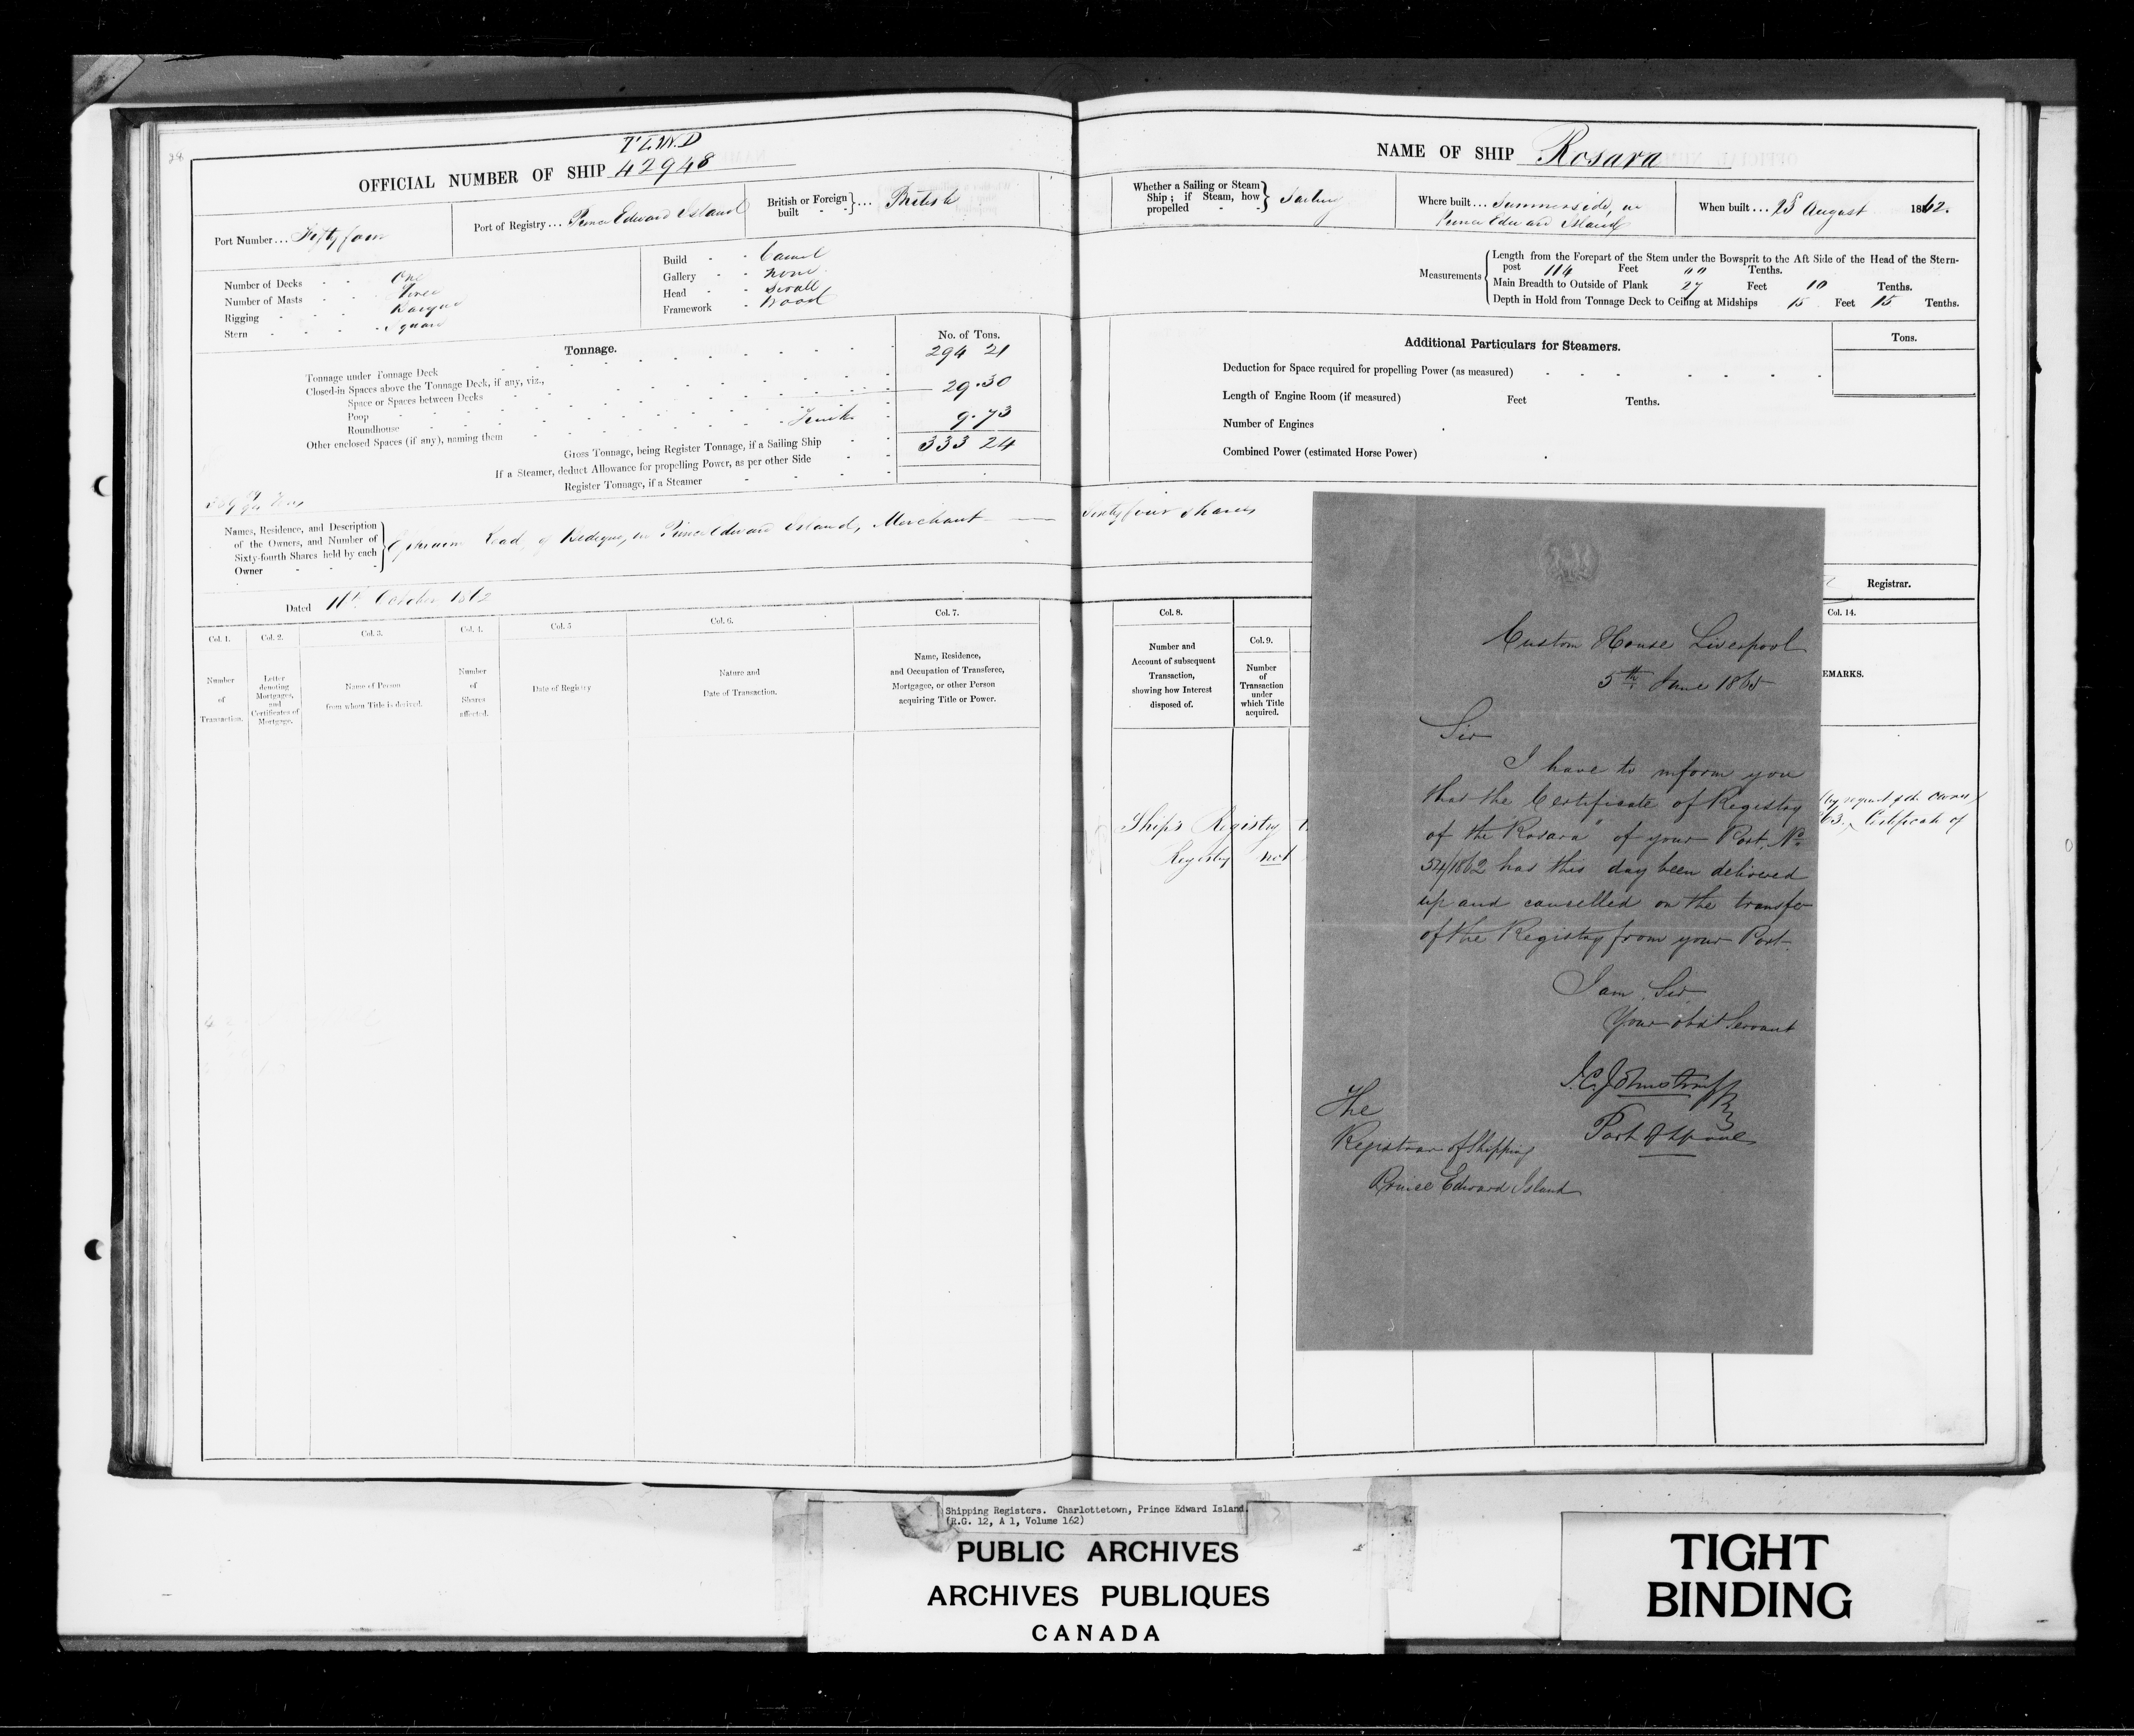 28
T L W D
OFFICIAL NUMBER OF SHIP 42948
Port Number ... Fifty four
Port of Registry ... Prince Edward Island
British or Foreign built } ... British
Number of Decks - - One
Number of Masts - - Three
Rigging - - - Barque
Stern - - - - Square
Build - - Carvel
Gallery - - None
Head - - Scroll
Framework - Wood
Tonnage.
No. of Tons.
Tonnage under Tonnage Deck 294 21
Closed-in Spaces above the Tonnage Deck, if any, viz.,
Space or Spaces between Decks 29.30
Poop
Roundhouse
Other enclosed Spaces (if any), naming them 9.73
Gross Tonnage, being Register Tonnage, if a Sailing Ship 333 24
If a Steamer, deduct Allowance for propelling Power, as per other Side
Register Tonnage, if a Steamer
Names, Residence, and Description of the Owners, and Number of Sixty-fourth Shares held by each Owner - - - }
Ephraim Read, of Bedeque, in Prince Edward Island, Merchant
Dated 11th October 1862
Col. 1.
Number of Transaction.
Col. 2.
Letter denoting Mortgages, and Certificates of Mortgage.
Col. 3.
Name of Person from whom Title is derived.
Col. 4.
Number of Shares affected.
Col. 5
Date of Registry
Col. 6.
Nature and Date of Transaction.
Col. 7.
Name, Residence, and Occupation of Transferee, Mortgagee, or other Person acquiring Title or Power.
NAME OF SHIP Rosara
Whether a Sailing or Steam Ship ; if Steam, how propelled - - } Sailing
Where built ... Summerside, in Prince Edward Island
When built ... 25 August 1862.
Measurements
Length from the Forepart of the Stem under the Bowsprit to the Aft Side of the Head of the Stern-
post 114 Feet Tenths.
Main Breadth to Outside of Plank 27 Feet 10 Tenths.
Depth in Hold from Tonnage Deck to Ceiling at Midships 15 Feet 15 Tenths.
Additional Particulars for Steamers.
Tons.
Deduction for Space required for propelling Power (as measured)
Length of Engine Room (if measured) Feet Tenths.
Number of Engines
Combined Power (estimated Horse Power)
Sixty four Shares
Registrar.
Col. 8.
Number and Account of subsequent Transaction, showing how Interest disposed of.
Col. 9.
Number of Transaction under which Title acquired.
Col. 14.
EMARKS.
Ship's Registry
Registry not
by request of the Owner
63. Certificate of
Custom House Liverpool
5th June 1865
Sir
I have to inform you
that the Certificate of Registry
of the "Rosara" of your Port No
54/1862 has this day been delivered
up and cancelled on the transfer
of the Registry from your Port.
I am, Sir
Your obdt Servant
J. C. Johnstone
The
Registrar of Shipping
Prince Edward Island
Shipping Registers. Charlottetown, Prince Edward Island.
(R.G. 12, A 1, Volume 162)
PUBLIC ARCHIVES
ARCHIVES PUBLIQUES
CANADA
TIGHT
BINDING